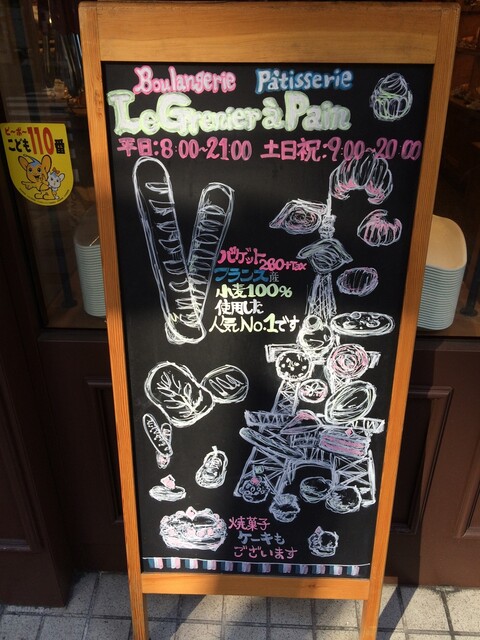 Boulangerie Pâtisserie
Le Grenier à Pain
平日:8:00~21:00 土日祝:9:00~20:00
バゲット260+Tax
フランス産
小麦100%
使用した
人気No.1です
焼菓子
ケーキも
ございます
ピーポ〜
こども110番